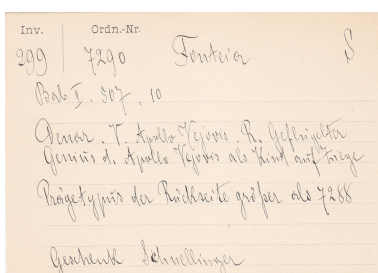 Inv. Ordn.-Nr.
299 7290 Fonteia S
Bab I. 507, 10
Denar. V. Apollo Vejovis R. Geflügelter
Genius d. Apollo Vejovis als Kind auf Ziege
Prägetypus der Rückseite größer als 7288
Geschenk Schnellinger